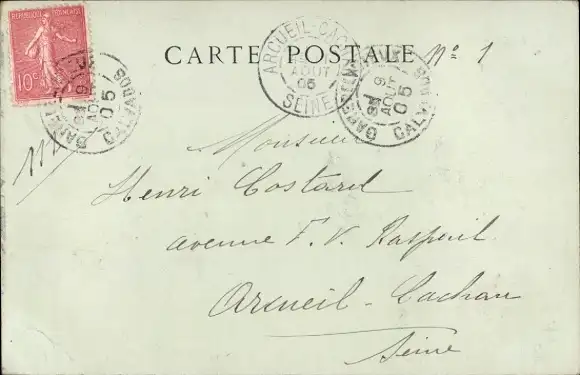 REPUBLIQUE FRANÇAISE
10c
CARTE POSTALE N° 1
ARCUEIL-CACHAN
AOUT
05
SEINE
AOUT
05
CALVADOS
AOUT
05
CALVADOS
Monsieur
Henri Costard
avenue F. V. Raspail
Arcueil-Cachan
Seine